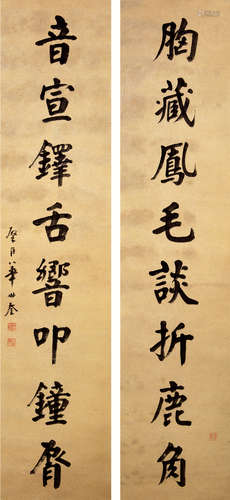 胸藏鳳毛談折鹿角
音宣鐸舌響叩鐘脣
華世奎